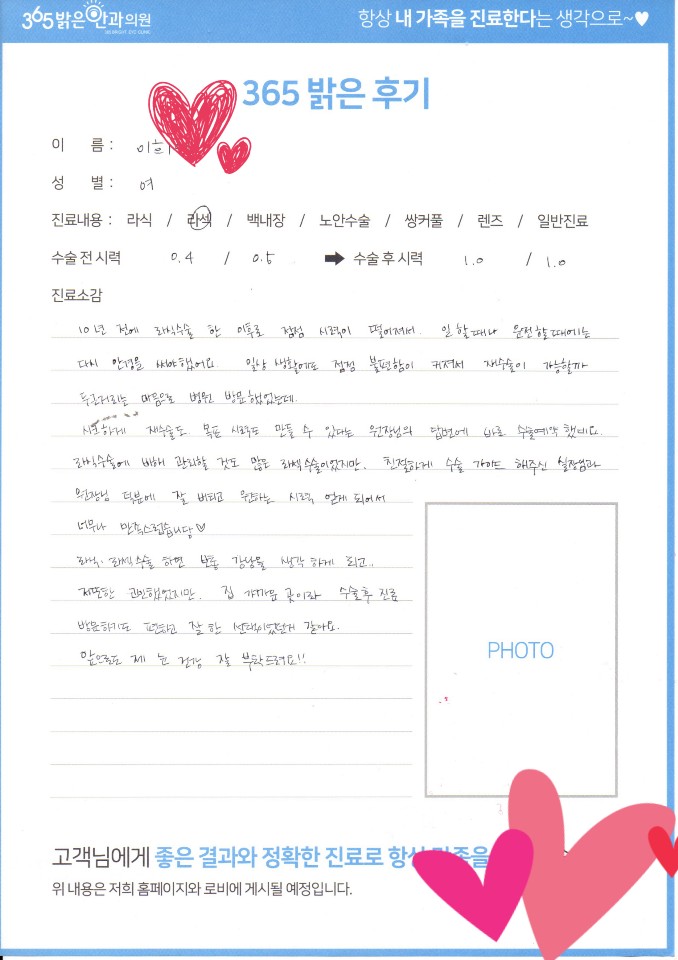 365밝은안과의원
항상 내 가족을 진료한다는 생각으로~♥
365 밝은 후기
이 름 : 이희
성 별 : 여
진료내용 : 라식 / 라섹 / 백내장 / 노안수술 / 쌍커풀 / 렌즈 / 일반진료
수술 전 시력 0.4 / 0.5 ➡ 수술 후 시력 1.0 / 1.0
진료소감
10년 전에 라식수술 한 이후로 점점 시력이 떨어져서. 일 할때나 운전할때에는
다시 안경을 써야했어요. 일상 생활에도 점점 불편함이 커져서 재수술이 가능할까
두근거리는 마음으로 병원 방문했었는데.
재수술도 목표 시력도 만들 수 있다는 원장님의 답변에 바로 수술예약 했네요.
라식수술에 비해 관리할 것도 많은 라섹수술이었지만. 친절하게 수술 가이드 해주신 실장님과
원장님 덕분에 잘 버티고 원하는 시력 얻게 되어서
너무나 만족스럽습니당♡
라식. 라섹수술 하면 보통 강남을 생각 하게 되고..
저또한 고민했었지만. 집 가까운 곳이라 수술후 진료
방문하기도 편하고 잘 한 선택이었던거 같아요.
앞으로도 제 눈 건강 잘 부탁드려요!!
PHOTO
고객님에게 좋은 결과와 정확한 진료로 항상
위 내용은 저희 홈페이지와 로비에 게시될 예정입니다.